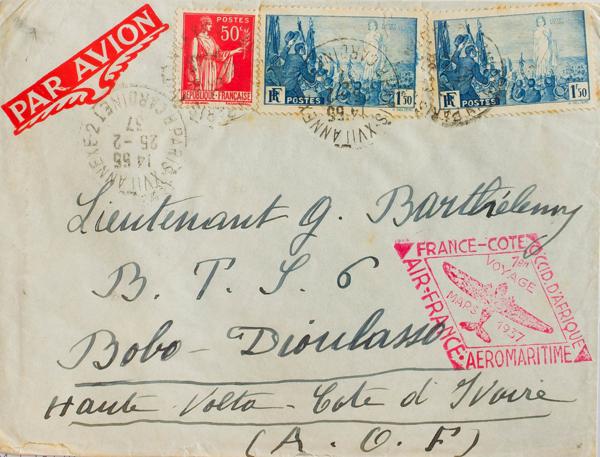 PAR AVION
POSTES
50c
REPUBLIQUE-FRANÇAISE
RF POSTES 1f50
RF POSTES 1f50
PARIS XVII ANNEXE-2
R CARDINET
14 55
25-2
37
Lieutenant G. Barthélemy
B. T. S. 6
Bobo-Dioulasso
Haute Volta - Cote d'Ivoire
(A. O. F)
FRANCE-COTE OCCID. D'AFRIQUE
1er VOYAGE
MARS 1937
AIR-FRANCE
AEROMARITIME